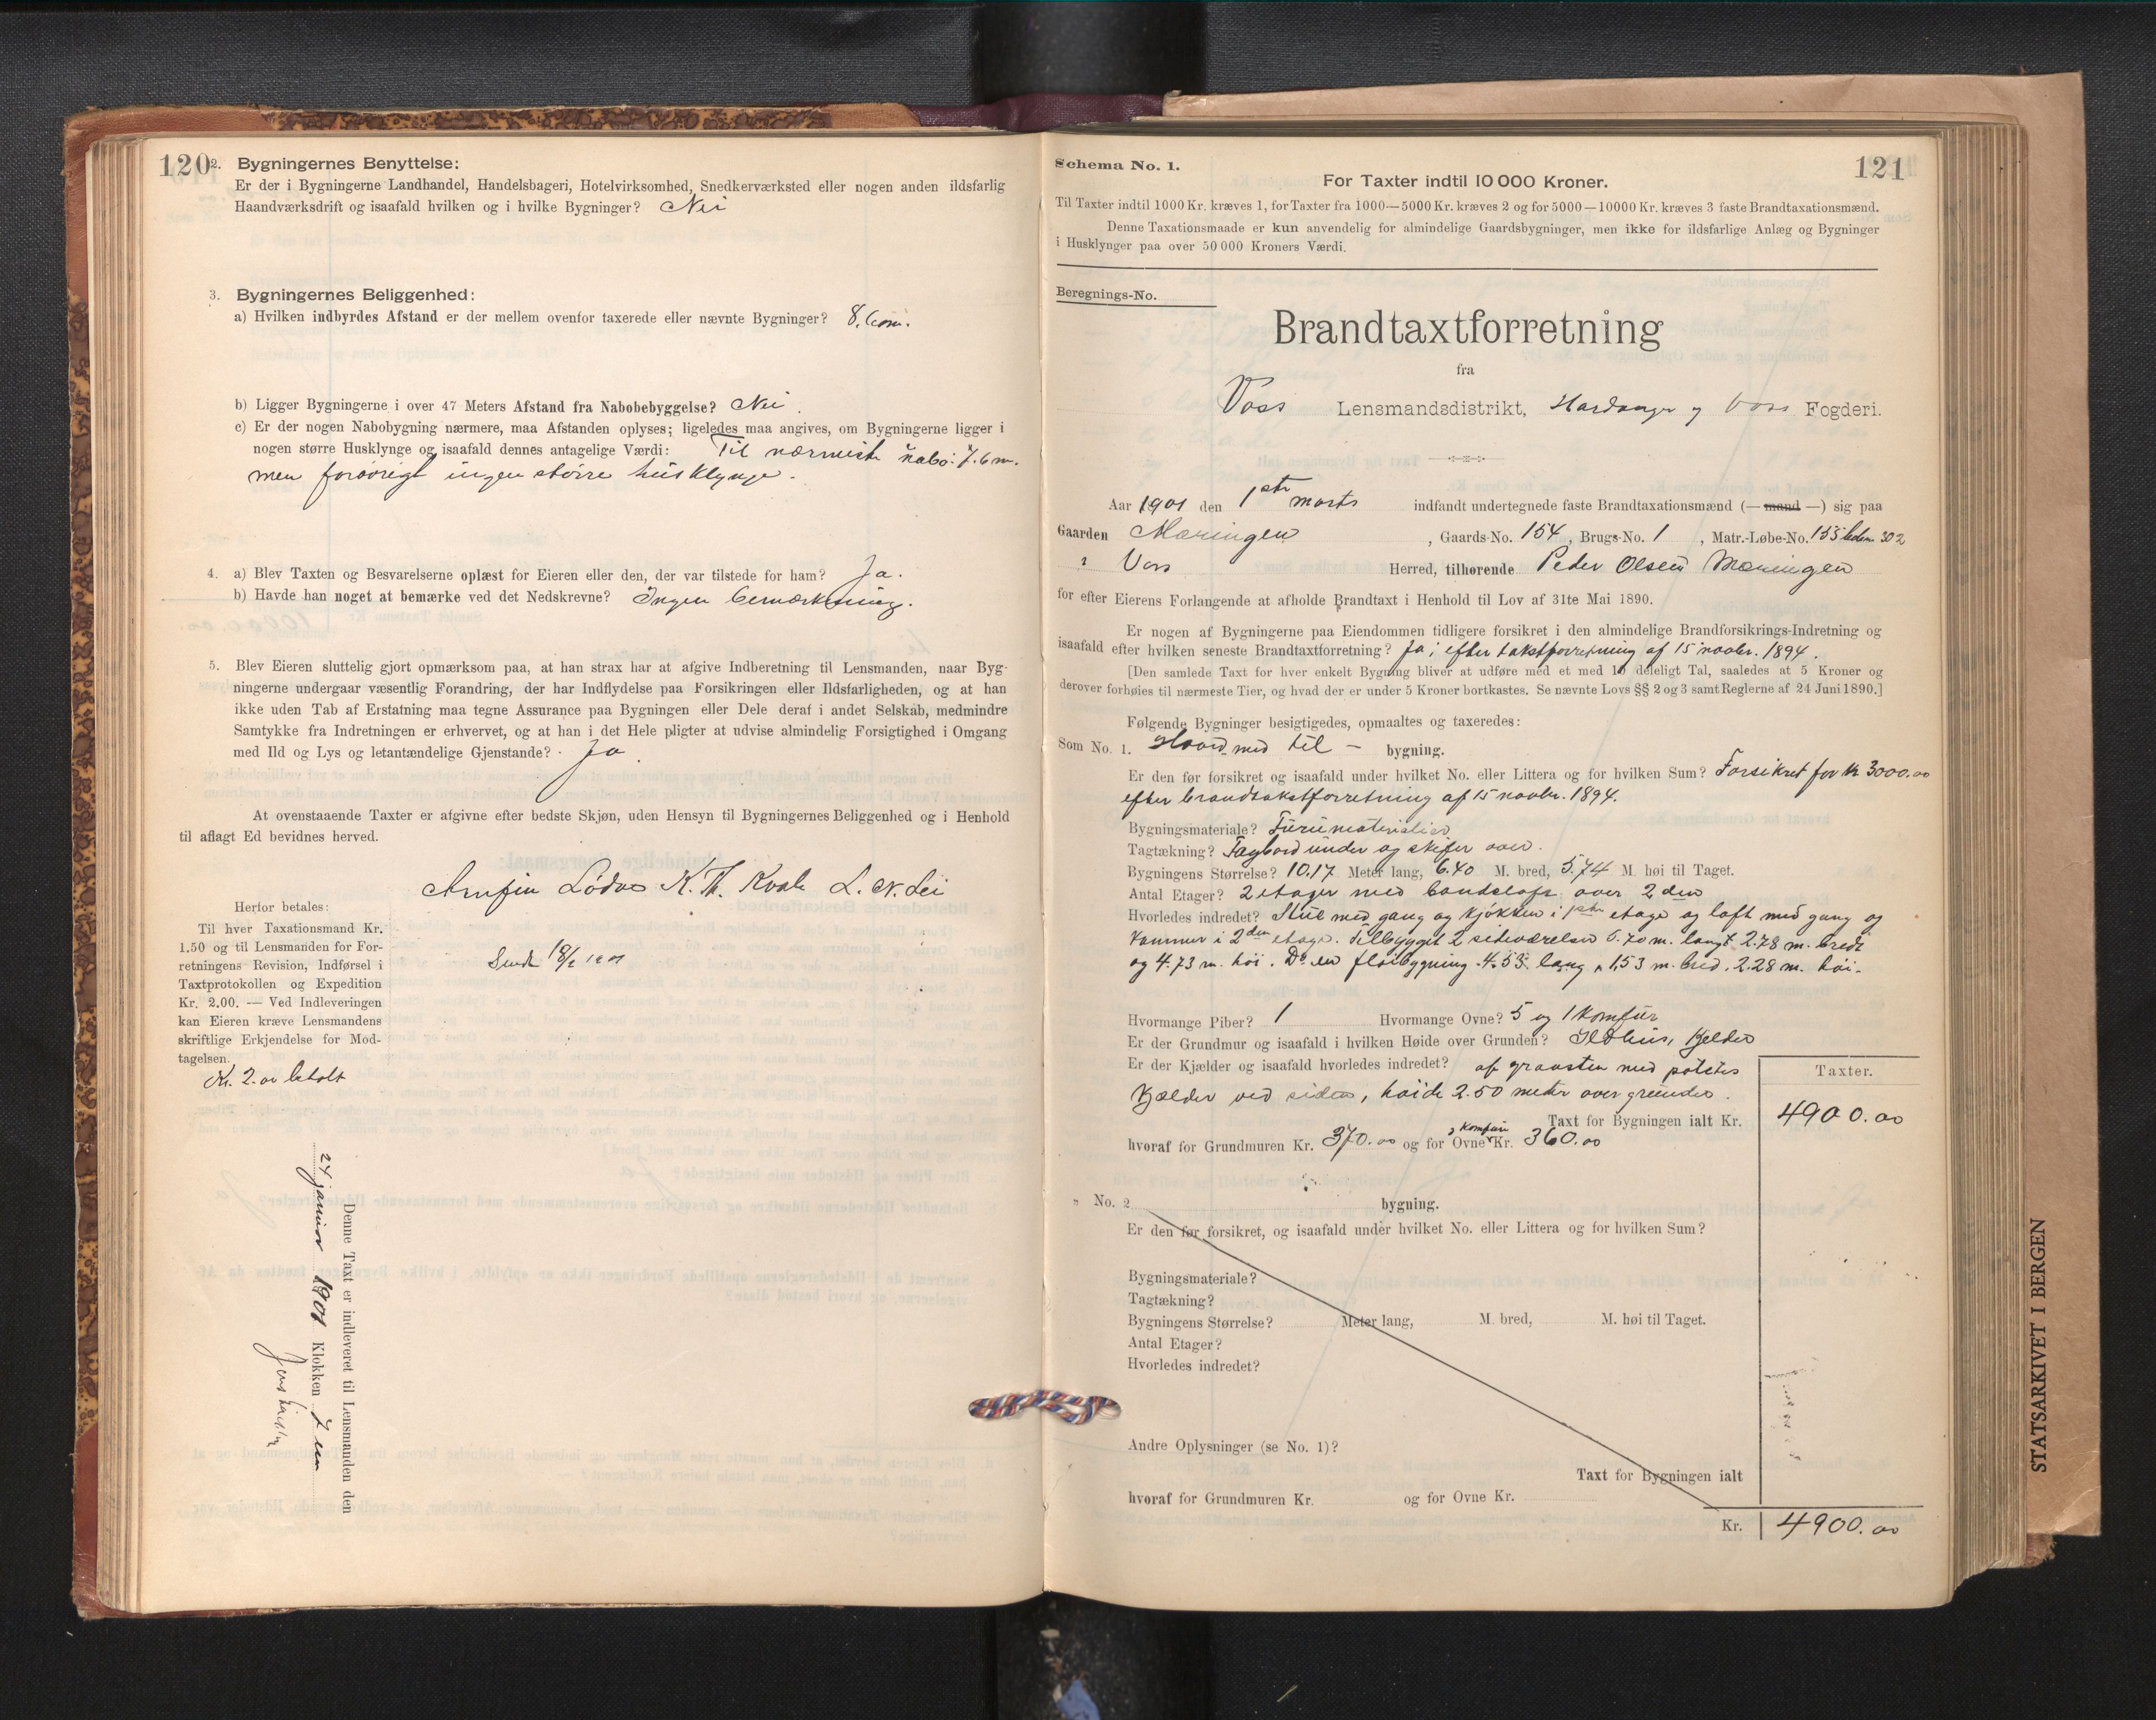 120
2. Bygningernes Benyttelse:
Er der i Bygningerne Landhandel, Handelsbageri, Hotelvirksomhed, Snedkerværksted eller nogen anden ildsfarlig
Haandværksdrift og isaafald hvilken og i hvilke Bygninger? Nei
3. Bygningernes Beliggenhed:
a) Hvilken indbyrdes Afstand er der mellem ovenfor taxerede eller nævnte Bygninger?
b) Ligger Bygningerne i over 47 Meters Afstand fra Nabobebyggelse? Nei.
c) Er der nogen Nabobygning nærmere, maa Afstanden oplyses; ligeledes maa angives, om Bygningerne ligger i
nogen større Husklynge og isaafald dennes antagelige Værdi: Til nærmeste nabo: 7.6 m.
men forøvrigt ingen større husklynge.
4. a) Blev Taxten og Besvarelserne oplæst for Eieren eller den, der var tilstede for ham? Ja.
b) Havde han noget at bemærke ved det Nedskrevne? Ingen bemærkning.
5. Blev Eieren sluttelig gjort opmærksom paa, at han strax har at afgive Indberetning til Lensmanden, naar Byg-
ningerne undergaar væsentlig Forandring, der har Indflydelse paa Forsikringen eller Ildsfarligheden, og at han
ikke uden Tab af Erstatning maa tegne Assurance paa Bygningen eller Dele deraf i andet Selskab, medmindre
Samtykke fra Indretningen er erhvervet, og at han i det Hele pligter at udvise almindelig Forsigtighed i Omgang
med Ild og Lys og letantændelige Gjenstande? Ja.
At ovenstaaende Taxter er afgivne efter bedste Skjøn, uden Hensyn til Bygningernes Beliggenhed og i Henhold
til aflagt Ed bevidnes herved.
Arnfin Lødve K. Th. Kvale L. N. Lei
Herfor betales:
Til hver Taxationsmand Kr.
1.50 og til Lensmanden for For-
retningens Revision, Indførsel i
Taxtprotokollen og Expedition
Kr. 2.00. — Ved Indleveringen
kan Eieren kræve Lensmandens
skriftlige Erkjendelse for Mod-
tagelsen.
Kr. 2.00 betalt
Sendt
Denne Taxt er indleveret til Lensmanden den
24 januar 1901 Klokken 7 em
Schema No. 1.
121
For Taxter indtil 10 000 Kroner.
Til Taxter indtil 1000 Kr. kræves 1, for Taxter fra 1000—5000 Kr. kræves 2 og for 5000—10000 Kr. kræves 3 faste Brandtaxationsmænd.
Denne Taxationsmaade er kun anvendelig for almindelige Gaardsbygninger, men ikke for ildsfarlige Anlæg og Bygninger
i Husklynger paa over 50 000 Kroners Værdi.
Beregnings-No.
Brandtaxtforretning
fra
Voss Lensmandsdistrikt, Hardanger og Voss Fogderi.
Aar 1901 den 1ste marts indfandt undertegnede faste Brandtaxationsmænd (— mand —) sig paa
Gaarden Mæringen, Gaards-No. 154, Brugs-No. 1, Matr.-Løbe-No.
i Voss Herred, tilhørende Peder Olsen Mæringen
for efter Eierens Forlangende at afholde Brandtaxt i Henhold til Lov af 31te Mai 1890.
Er nogen af Bygningerne paa Eiendommen tidligere forsikret i den almindelige Brandforsikrings-Indretning og
isaafald efter hvilken seneste Brandtaxtforretning? Ja; efter takstforretning af 15 novbr. 1894.
[Den samlede Taxt for hver enkelt Bygning bliver at udføre med et med 10 deleligt Tal, saaledes at 5 Kroner og
derover forhøies til nærmeste Tier, og hvad der er under 5 Kroner bortkastes. Se nævnte Lovs §§ 2 og 3 samt Reglerne af 24 Juni 1890.]
Følgende Bygninger besigtigedes, opmaaltes og taxeredes:
Som No. 1. Hoved med til- bygning.
Er den før forsikret og isaafald under hvilket No. eller Littera og for hvilken Sum? Forsikret for kr 3000.00
efter brandtakstforretning af 15 novbr. 1894.
Bygningsmateriale? Furumaterialier
Tagtækning? Tagbord under og skifer over.
Bygningens Størrelse? 10,17 Meter lang, 6.40 M. bred, 5.74 M. høi til Taget.
Antal Etager? 2 etager med bandsloft over 2den
Hvorledes indredet? Stue med gang og kjøkken i 1ste etage og loft med gang og
kammer i 2den etage. Tilbygget 2 sideværelser 6.70 m. langt 2.78 m. bredt
og 4.73 m. høi. Do en fløibygning 4.53 lang, 1,53 m. bred, 2.28 m. høi.
Hvormange Piber? 1 Hvormange Ovne? 5 og 1 komfur
Er der Grundmur og isaafald i hvilken Høide over Grunden? Ildhus, kjelder
Er der Kjælder og isaafald hvorledes indredet? af graasten med potetes
kjælder ved siden, høide 2.50 meter over grunden.
Taxter.
Taxt for Bygningen ialt Kr. 4900.00
hvoraf for Grundmuren Kr. 370.00 og for Ovne & komfur Kr. 360.00
" No. 2 bygning.
Er den før forsikret, og isaafald under hvilket No. eller Littera og for hvilken Sum?
Bygningsmateriale?
Tagtækning?
Bygningens Størrelse? Meter lang, M. bred, M. høi til Taget.
Antal Etager?
Hvorledes indredet?
Andre Oplysninger (se No. 1)?
Taxt for Bygningen ialt
hvoraf for Grundmuren Kr. og for Ovne Kr.
Kr. 4900.00
STATSARKIVET I BERGEN